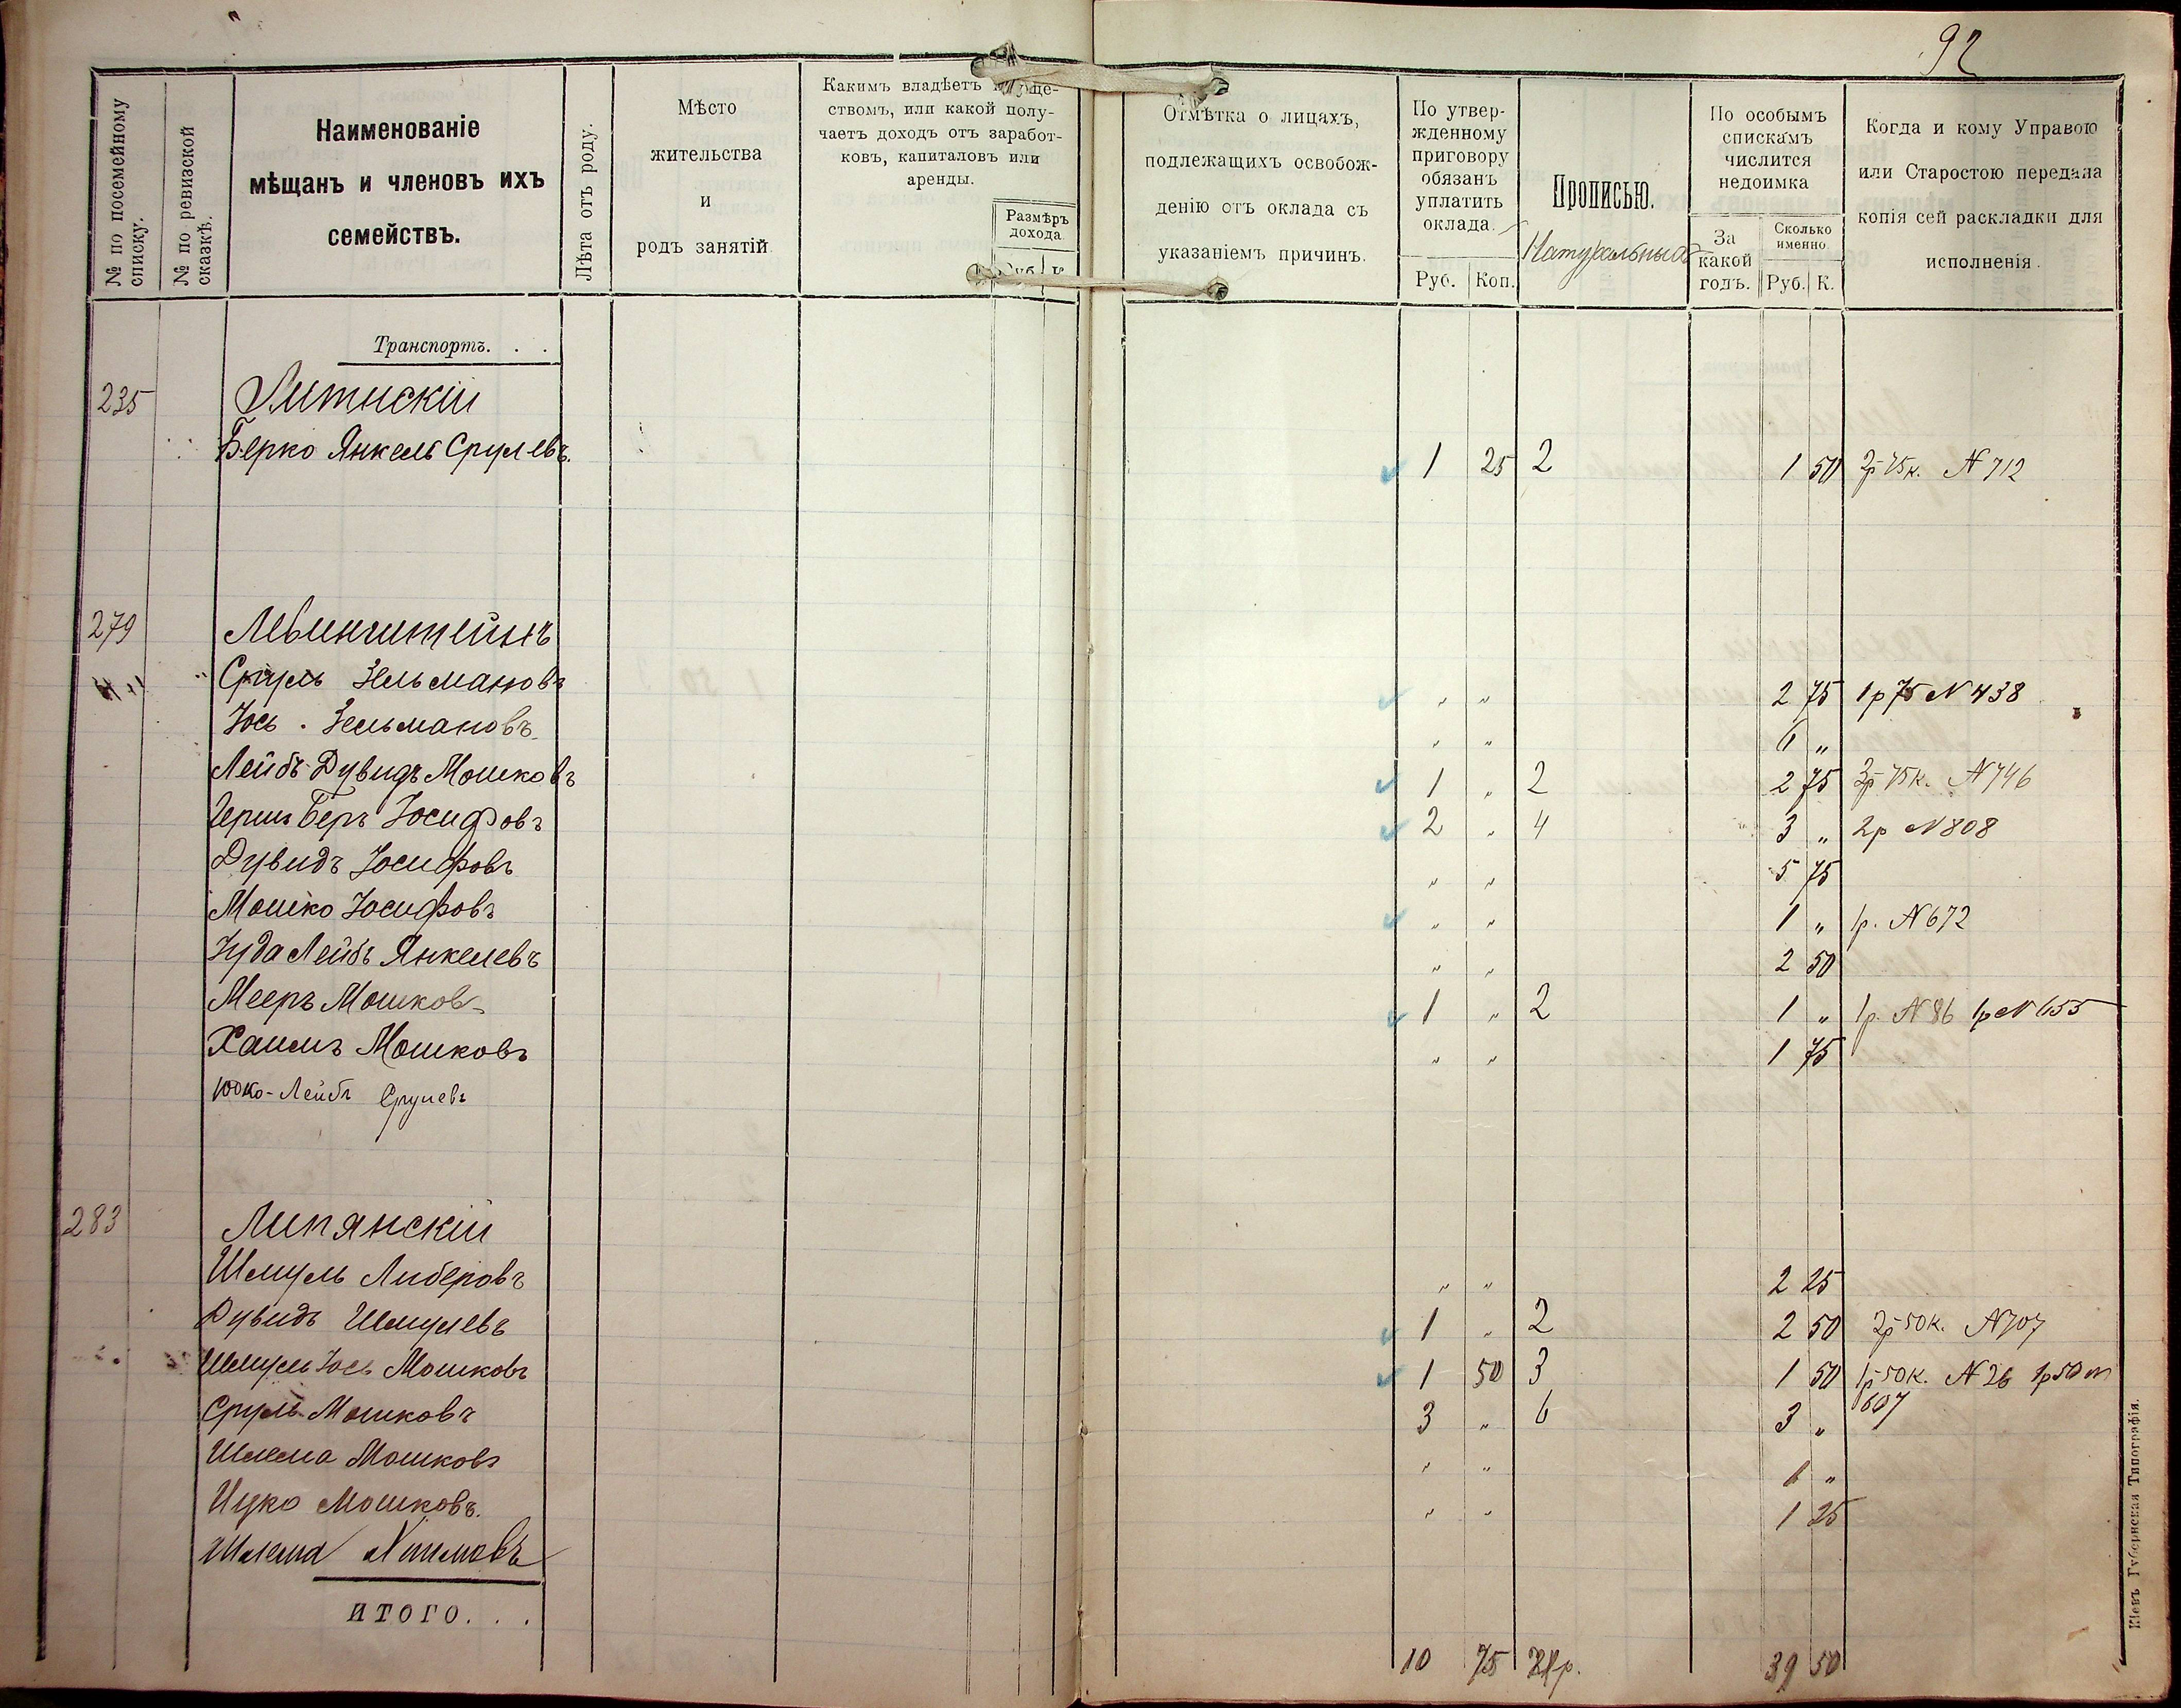 92
№ по посемейному списку.
№ по ревизской сказкѣ.
Наименованіе
мѣщанъ и членовъ ихъ
семействъ.
Лѣта отъ роду.
Мѣсто
жительства
и
родъ занятій.
Какимъ владѣетъ
ствомъ, или какой полу-
чаетъ доходъ отъ заработ-
ковъ, капиталовъ или
аренды.
Размѣръ
дохода
Руб. К.
Отмѣтка о лицахъ,
подлежащихъ освобож-
денію отъ оклада съ
указаніемъ причинъ.
По утвер-
жденному
приговору
обязанъ
уплатить
оклада.
Руб. Коп.
Прописью.
По особымъ
спискамъ
числится
недоимка
За
какой
годъ.
Сколько
именно.
Руб. К.
Когда и кому Управою
или Старостою передана
копія сей раскладки для
исполненія.
Транспортъ. . .
235 Литнскій
Берко Янкель Срулевъ. 1 25 2 1 50 2р 75к. N 712
279 Левинштейнъ
Сруль Зельмановъ „ „ 2 75 1р 75 N 438
Іось Зельмановъ „ „ 6 „
Лейбъ Дувидъ Мошковъ 1 „ 2 2 75 3р 75к. N 746
Герш Беръ Іосифовъ 2 „ 4 3 „ 2р N 808
Дувидъ Іосифовъ „ „ 5 75
Мошко Іосифовъ „ „ 1 „ 1р. N 672
Іуда Лейбъ Янкелевъ „ „ 2 50
Мееръ Мошковъ 1 „ 2 1 „ 1р. N 86 1р N 655
Хаимъ Мошковъ „ „ 1 75
Юдко-Лейбъ Срулевъ
283 Липянскій
Шмуль Либеровъ „ „ 2 25
Дувидъ Шмулевъ 1 „ 2 2 50 2р 50к. N 707
Шмуль Іось Мошковъ 1 50 3 1 50 1р 50к. N 26 1р 50
607
Сруль Мошковъ 3 „ 6 3 „
Шлема Мошковъ „ „ „
Ицко Мошковъ. „ „ 1 25
Шлема
ИТОГО. . .
10 75 39 50
Кіевъ Губернская Типографія.